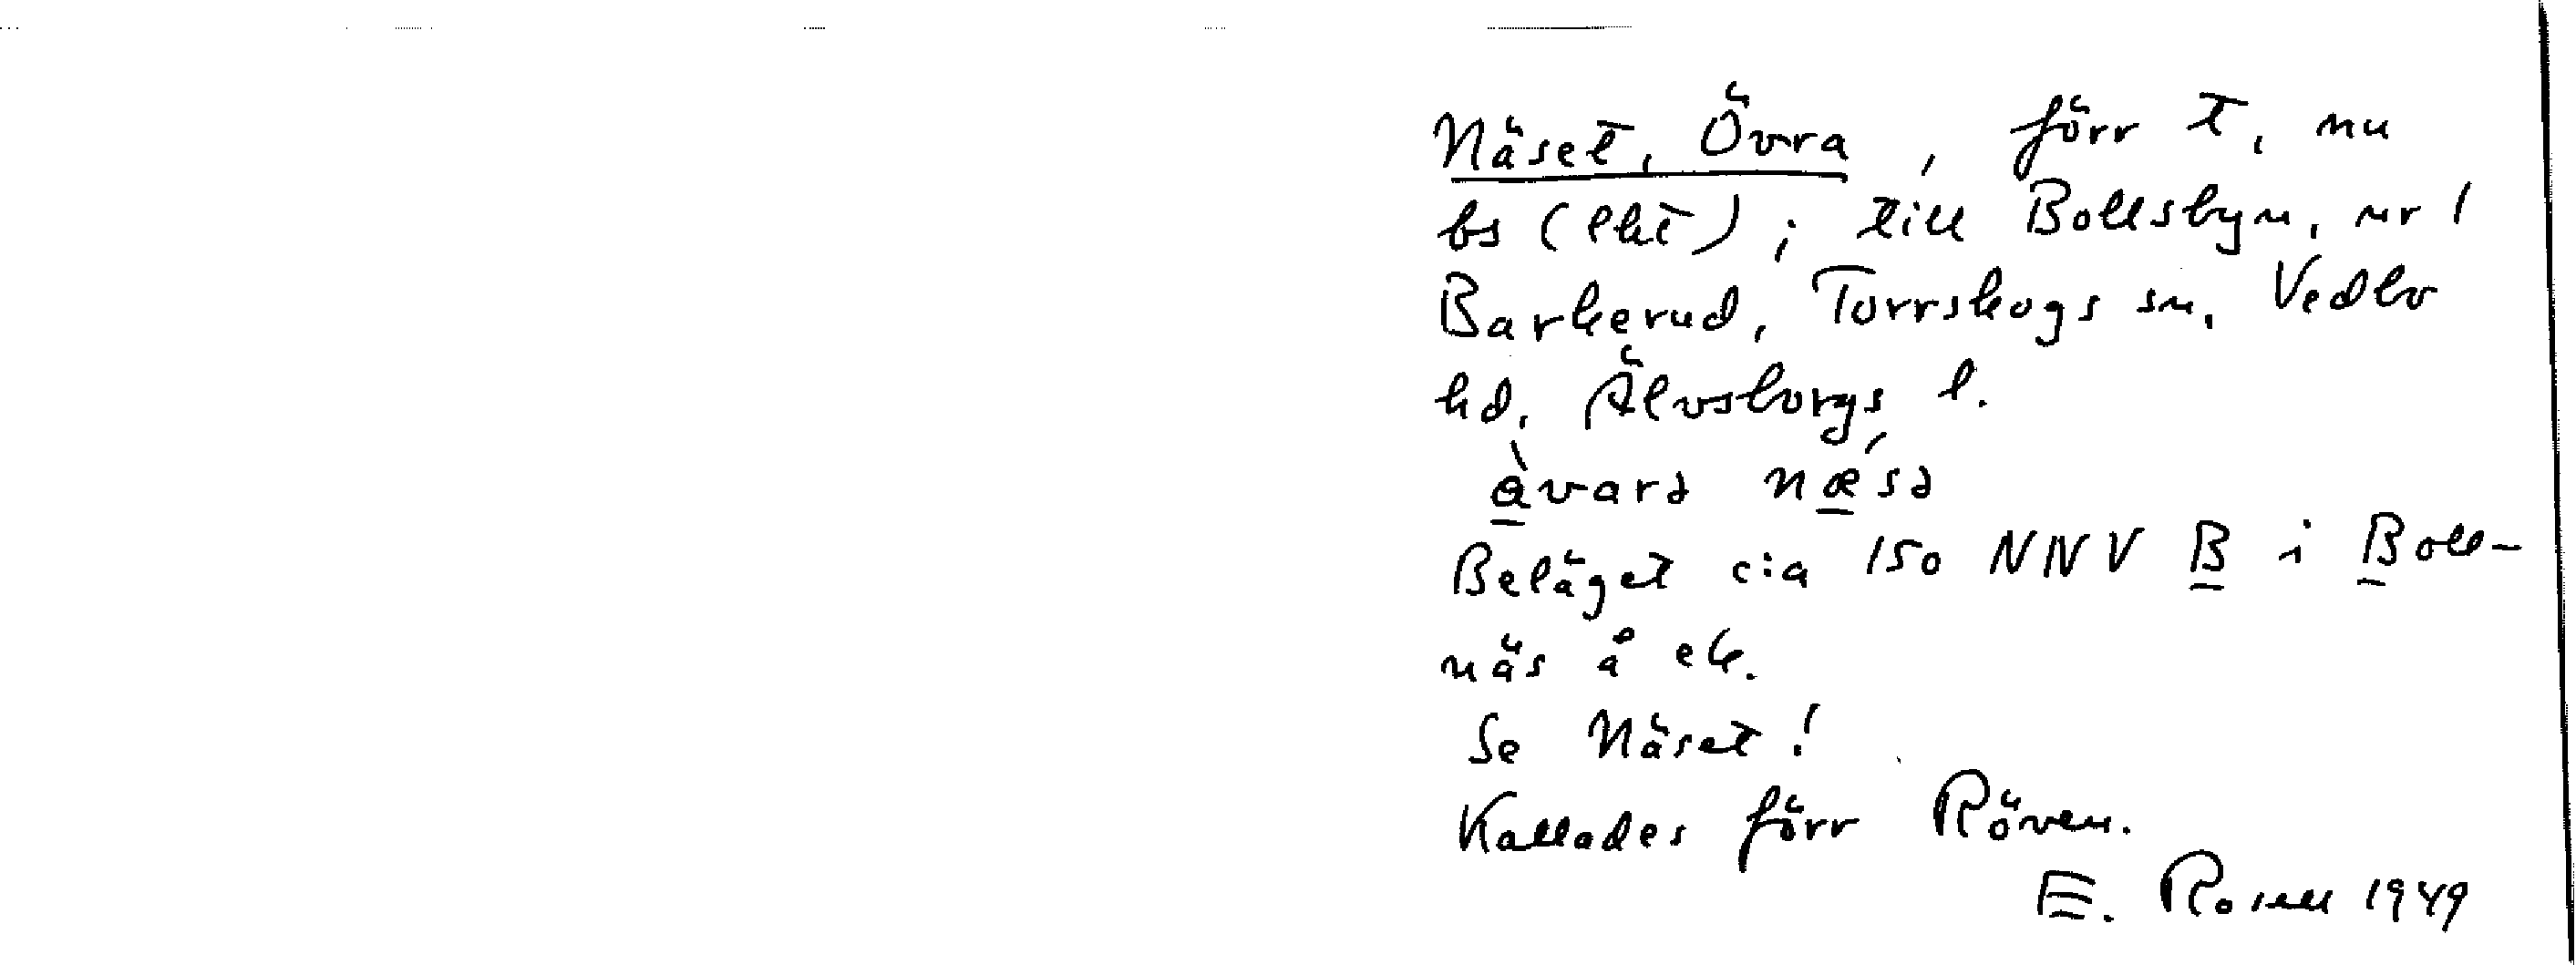 Näset, Övra, förr t, nu
bs (lht); till Bollsbyn, nr 1
Barkerud, Torrskogs sn, Vedbo
hd, Älvsborgs l.
àvarə næ´sə
Beläget c:a 150 NNV B i Boll-
näs å ek.
Se Näset!
Kallades förr Röven.
E. Rosell 1949